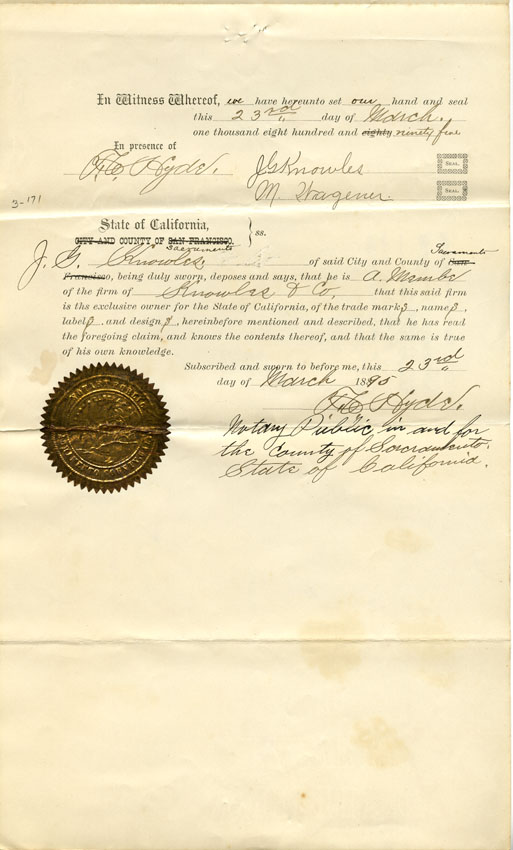 In Witness Whereof, we have hereunto set our hand and seal
this 23rd day of March.
one thousand eight hundred and eighty ninety five
In presence of
F. C. Hyde. J G Knowles SEAL.
M. Wagener. SEAL.
3-171
State of California,
CITY AND COUNTY OF SAN FRANCISCO. } ss.
Sacramento
Sacramento
J. G. Knowles of said City and County of San
Francisco, being duly sworn, deposes and says, that he is a. Member
of the firm of Knowles & Co, that this said firm
is ths exclusive owner for the State of California, of the trade mark, name,
label, and design, hereinbefore mentioned and described, that he has read
the foregoing claim, and knows the contents thereof, and that the same is true
of his own knowledge.
Subscribed and sworn to before me, this 23rd
day of March 1895
F. C. Hyde.
Notary Public in and for
the County of Sacramento
State of California.
NOTARY PUBLIC